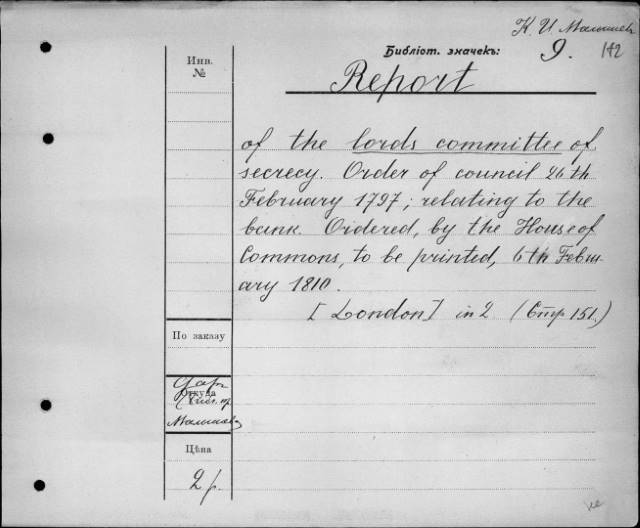 К. И. Малышев
Библіот. значекъ: 9. 142
Инв.
№
Report
of the lords committee of
secrecy. Order of council 26th
February 1797; relating to the
bank. Ordered, by the House of
Commons, to be printed, 6th Febru-
ary 1810.
[London] in 2 (Стр 151.)
По заказу
Даръ
Откуда
Малышева
Цѣна
2 р.